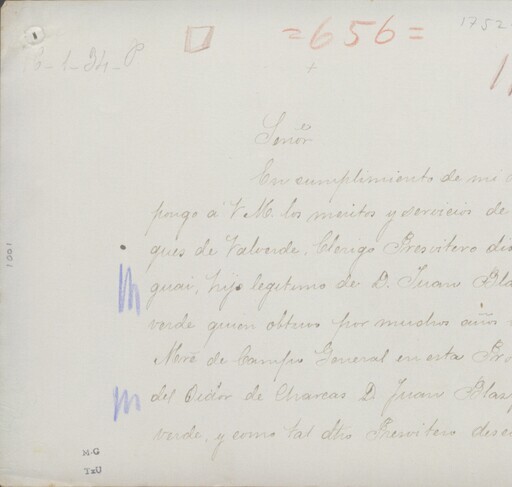 =656=
1752
6-1-24-P
Señor
En cumplimiento de mi
pongo á V.M. los meritos y servicios de
ques de Valverde, Clerigo Presvitero
guai, hijo legitimo de D. Juan
verde quien obtuvo por muchos años
de Campo General en esta
del Oidor de Charcas D. Juan
verde, y como tal dho Presvitero
1001
M-G